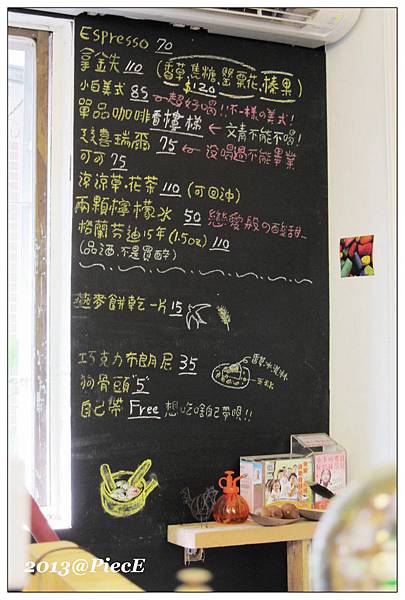 Espresso 70
拿鐵 110 (香草,焦糖,罌粟花,榛果)
$120
小白美式 85 超好喝!!不一樣的美式!
單品咖啡看樓梯 ← 文青不能不喝!
瑞爾 75 ← 沒喝過不能畢業
可可 75
涼草.花茶 110 (可回沖)
兩顆檸檬冰 50 戀愛般の酸甜
格蘭芬迪15年(1.5oz) 110
(品酒.不是買醉)
燕麥餅乾一片 15
巧克力布朗尼 35
狗骨頭 5
自己帶 Free 想吃啥自己帶喂!!
2013@PiecE